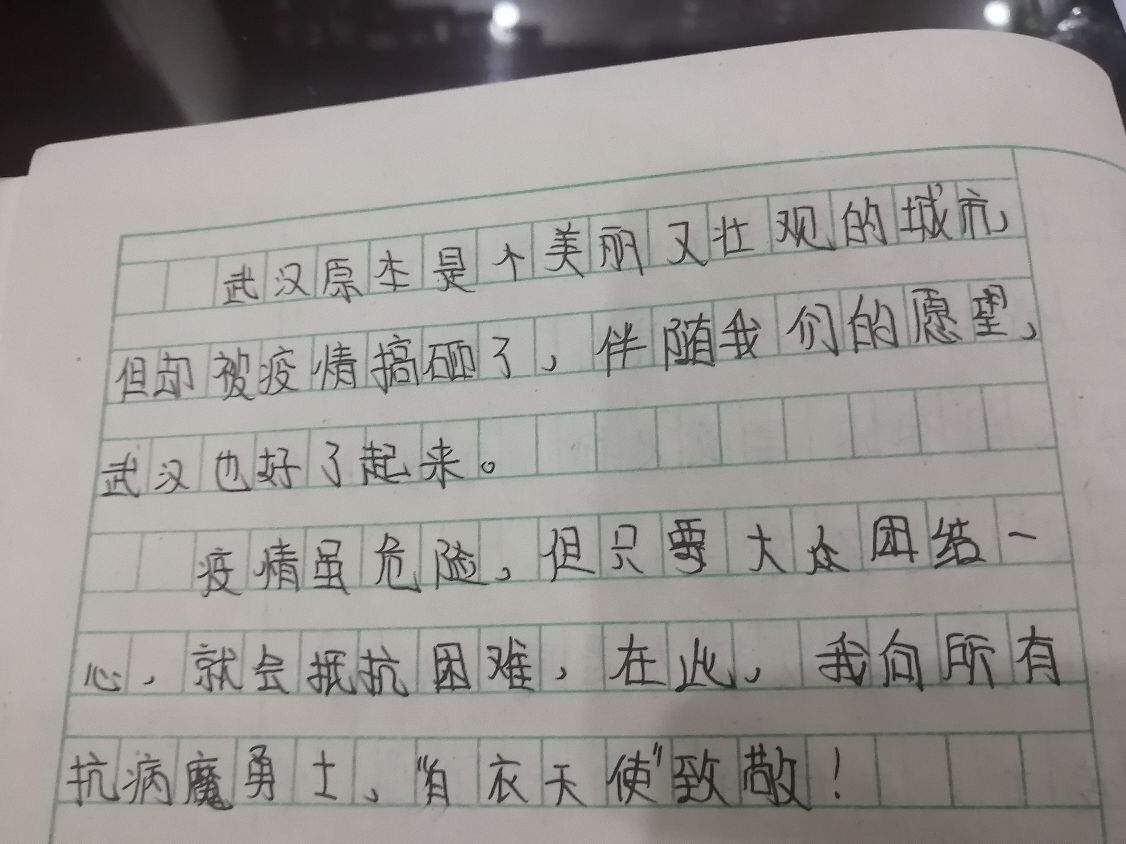 武汉原本是个美丽又壮观的城市，
但却被疫情搞砸了，伴随我们的愿望，
武汉也好了起来。
疫情虽危险，但只要大众团结一
心，就会抵抗困难，在此，我向所有
抗病魔勇士、“白衣天使”致敬！